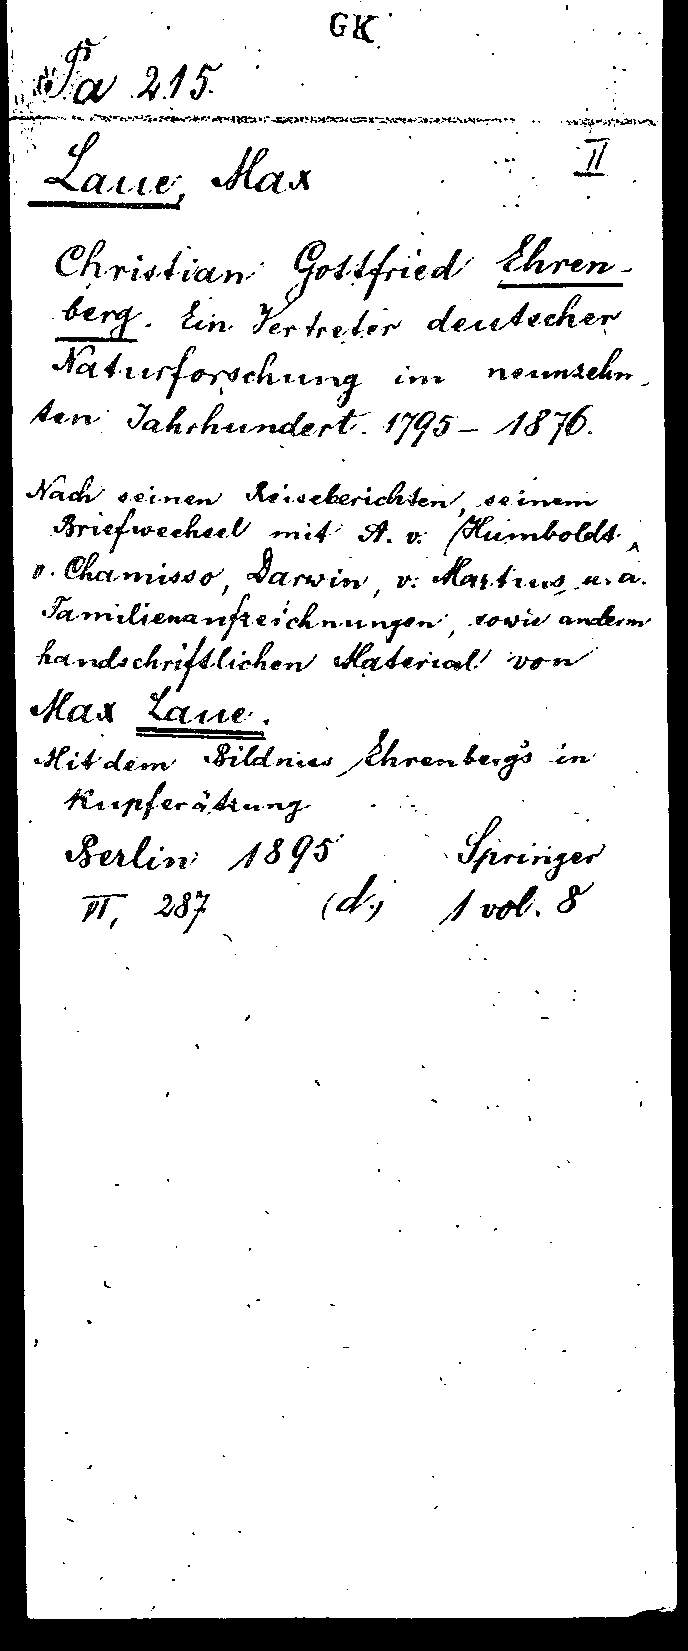 GK
Pa 215.
II
Laue, Max
Christian Gottfried Ehren-
berg. Ein Vertreter deutscher
Naturforschung im neunzehn-
ten Jahrhundert. 1795 - 1876.
Nach seinen Reiseberichten, seinem
Briefwechsel mit A. v. Humboldt,
v. Chamisso, Darwin, v. Martius u. a.
Familienaufzeichnungen, sowie anderm
handschriftlichen Material von
Max Laue.
Mit dem Bildniss Ehrenberg's in
Kupferätzung
Berlin 1895 Springer
VI, 287 (d.) 1 vol. 8